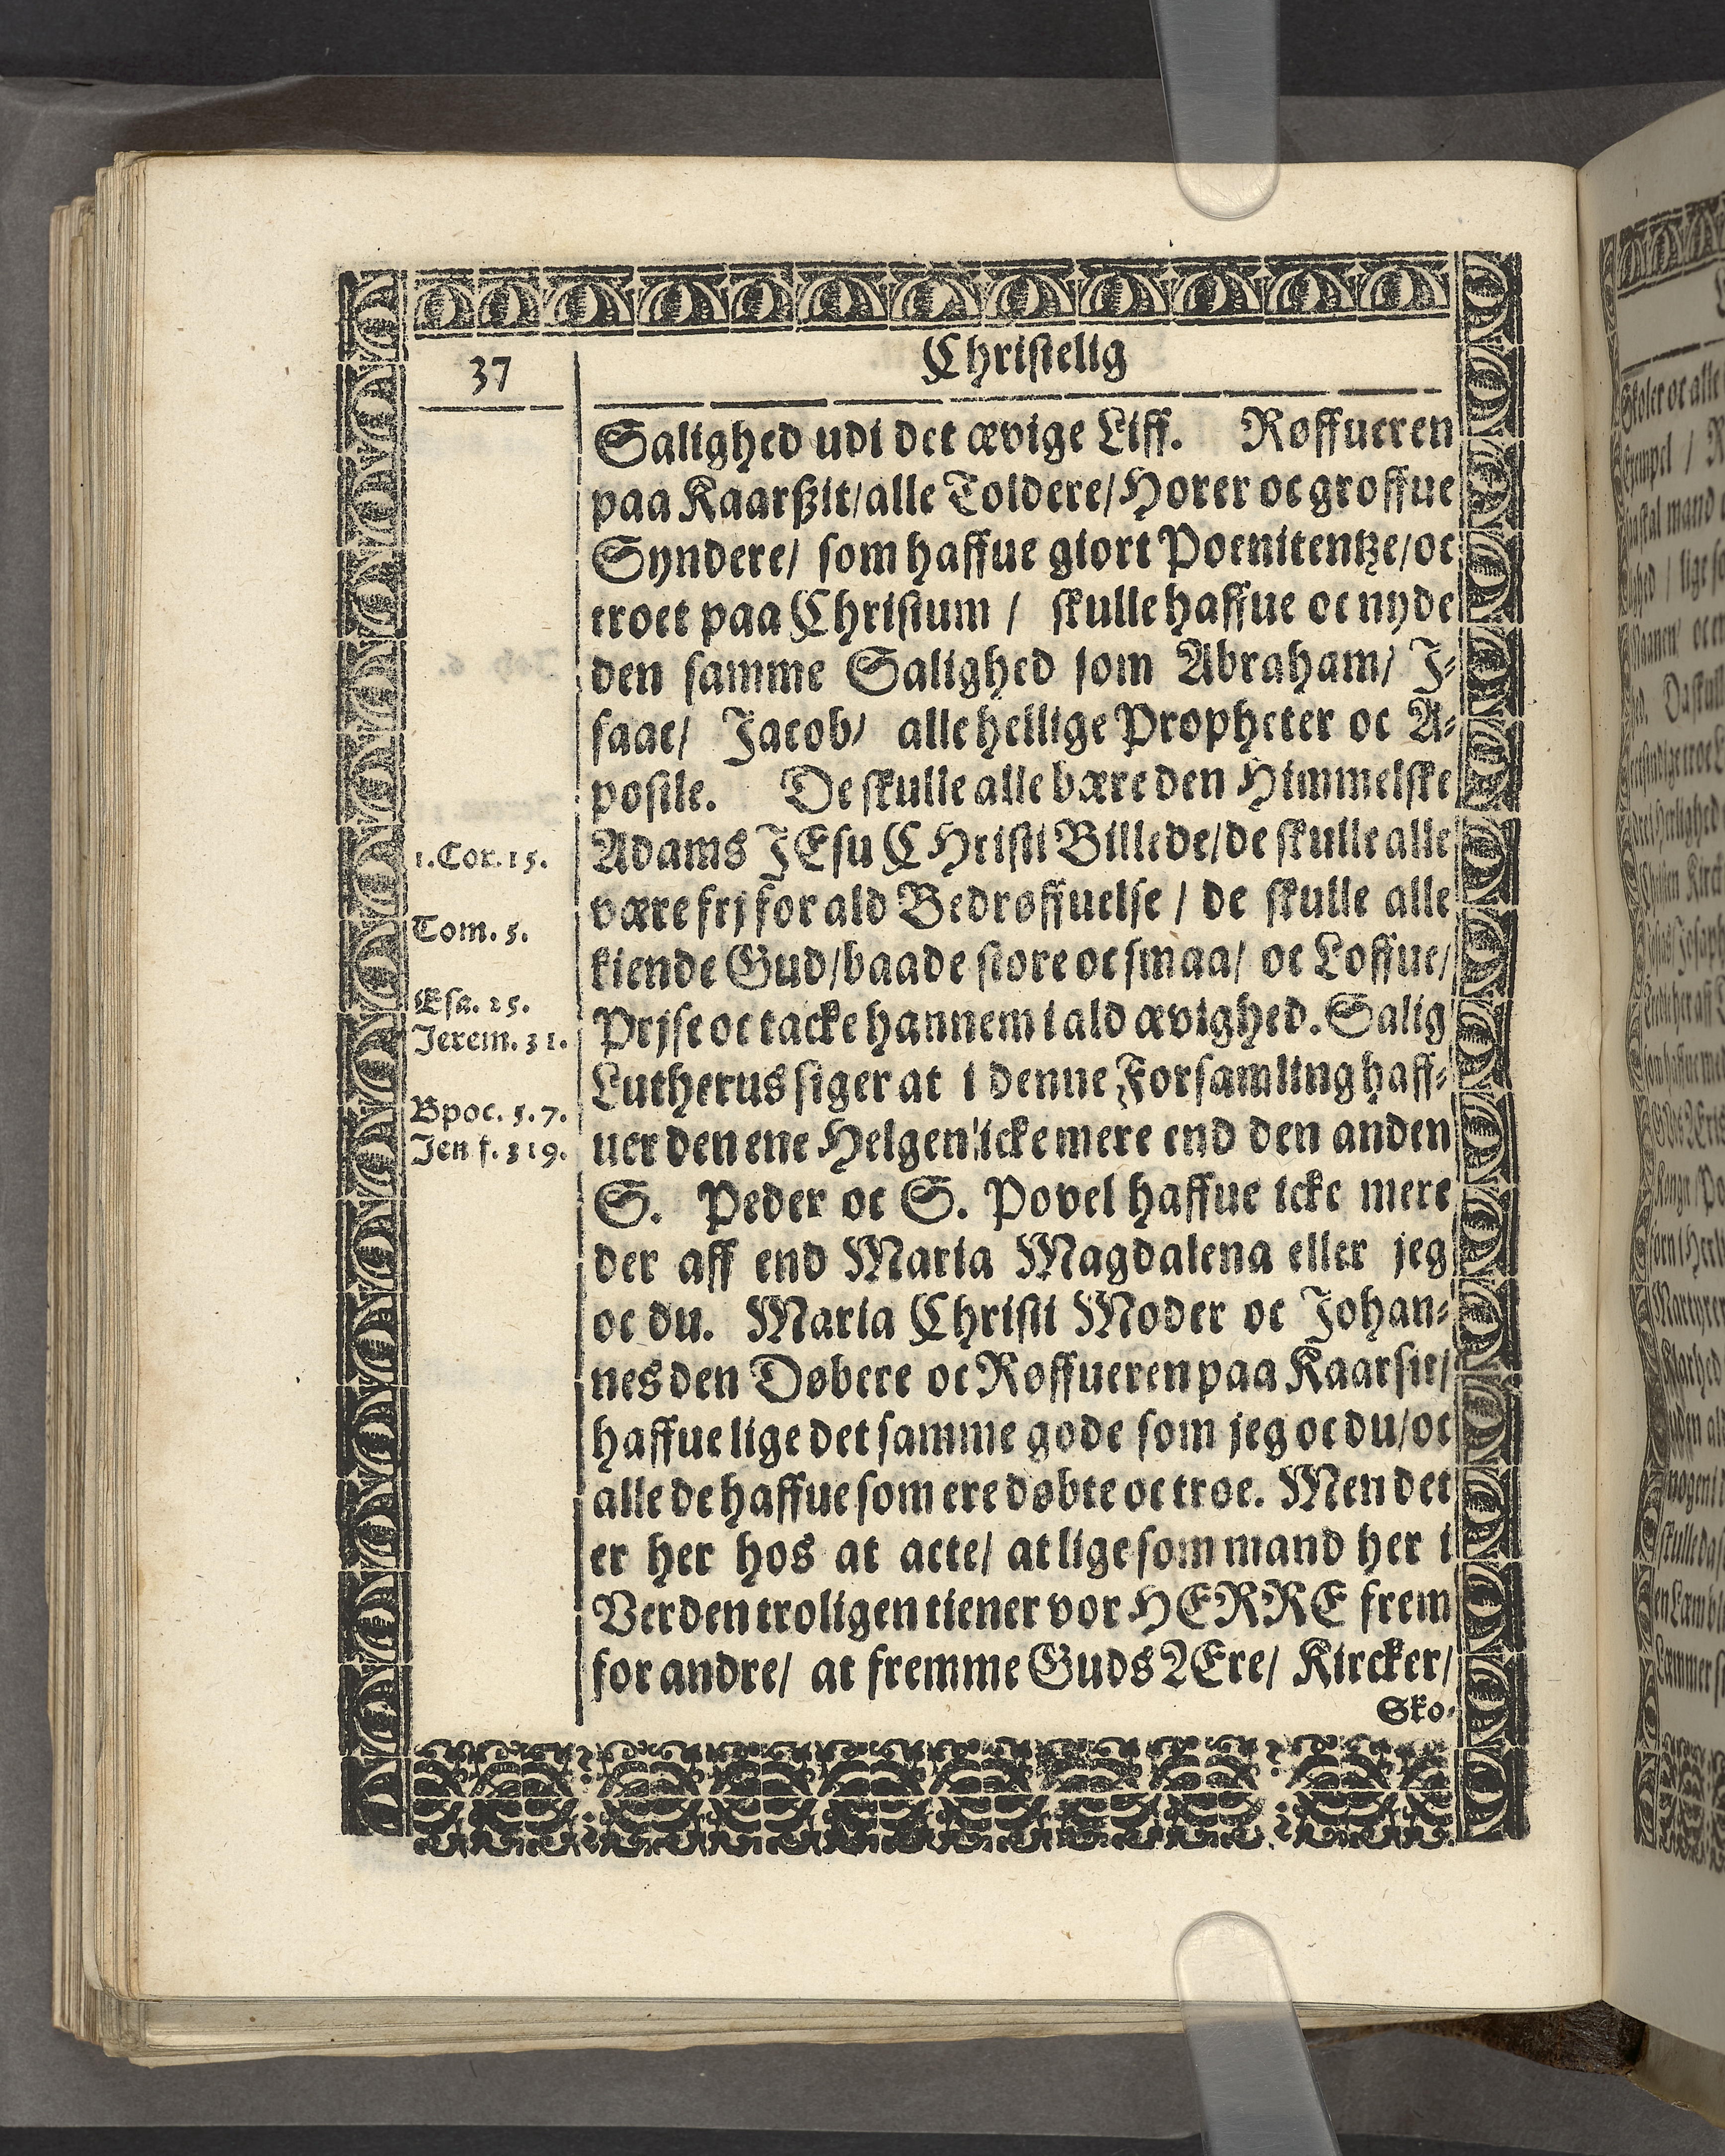 37
Christelig
Salighed udi det ævige Liff. Røffueren
paa Kaarßit/alle Toldere/Horer oc groffue
Syndere/ som haffue giort Poenitentze/oc
troet paa Christum / skulle haffue oc nyde
den samme Salighed som Abraham/ J⸗
saac/ Jacob/ alle hellige Propheter oc A⸗
postle. De skulle alle bære den Himmelske
Adams JEsu CHristi Billede/de skulle alle
være frj for ald Bedrøffuelse / de skulle alle
kiende Gud/baade store oc smaa/ oc Loffue/
Prjse oc tacke hannem i ald ævighed. Salig
Lutherus siger at i denne Forsamling haff⸗
uer den ene Helgen icke mere end den anden
S. Peder oc S. Povel haffue icke mere
der aff end Maria Magdalena eller jeg
oc du. Maria Christi Moder oc Johan⸗
nes den Døbere oc Røffueren paa Kaarsit/
haffue lige det samme gode som jeg oc du/oc
alle de haffue som ere døbte oc troe. Men det
er her hos at acte/ at lige som mand her i
Verden troligen tiener vor HERRE frem
for andre/ at fremme Guds Ære/ Kircker/
Sko⸗
1. Cor. 15.
Tom. 5.
Esa. 25.
Jerem. 31.
Bpoc. 5. 7.
Jen f. 319.